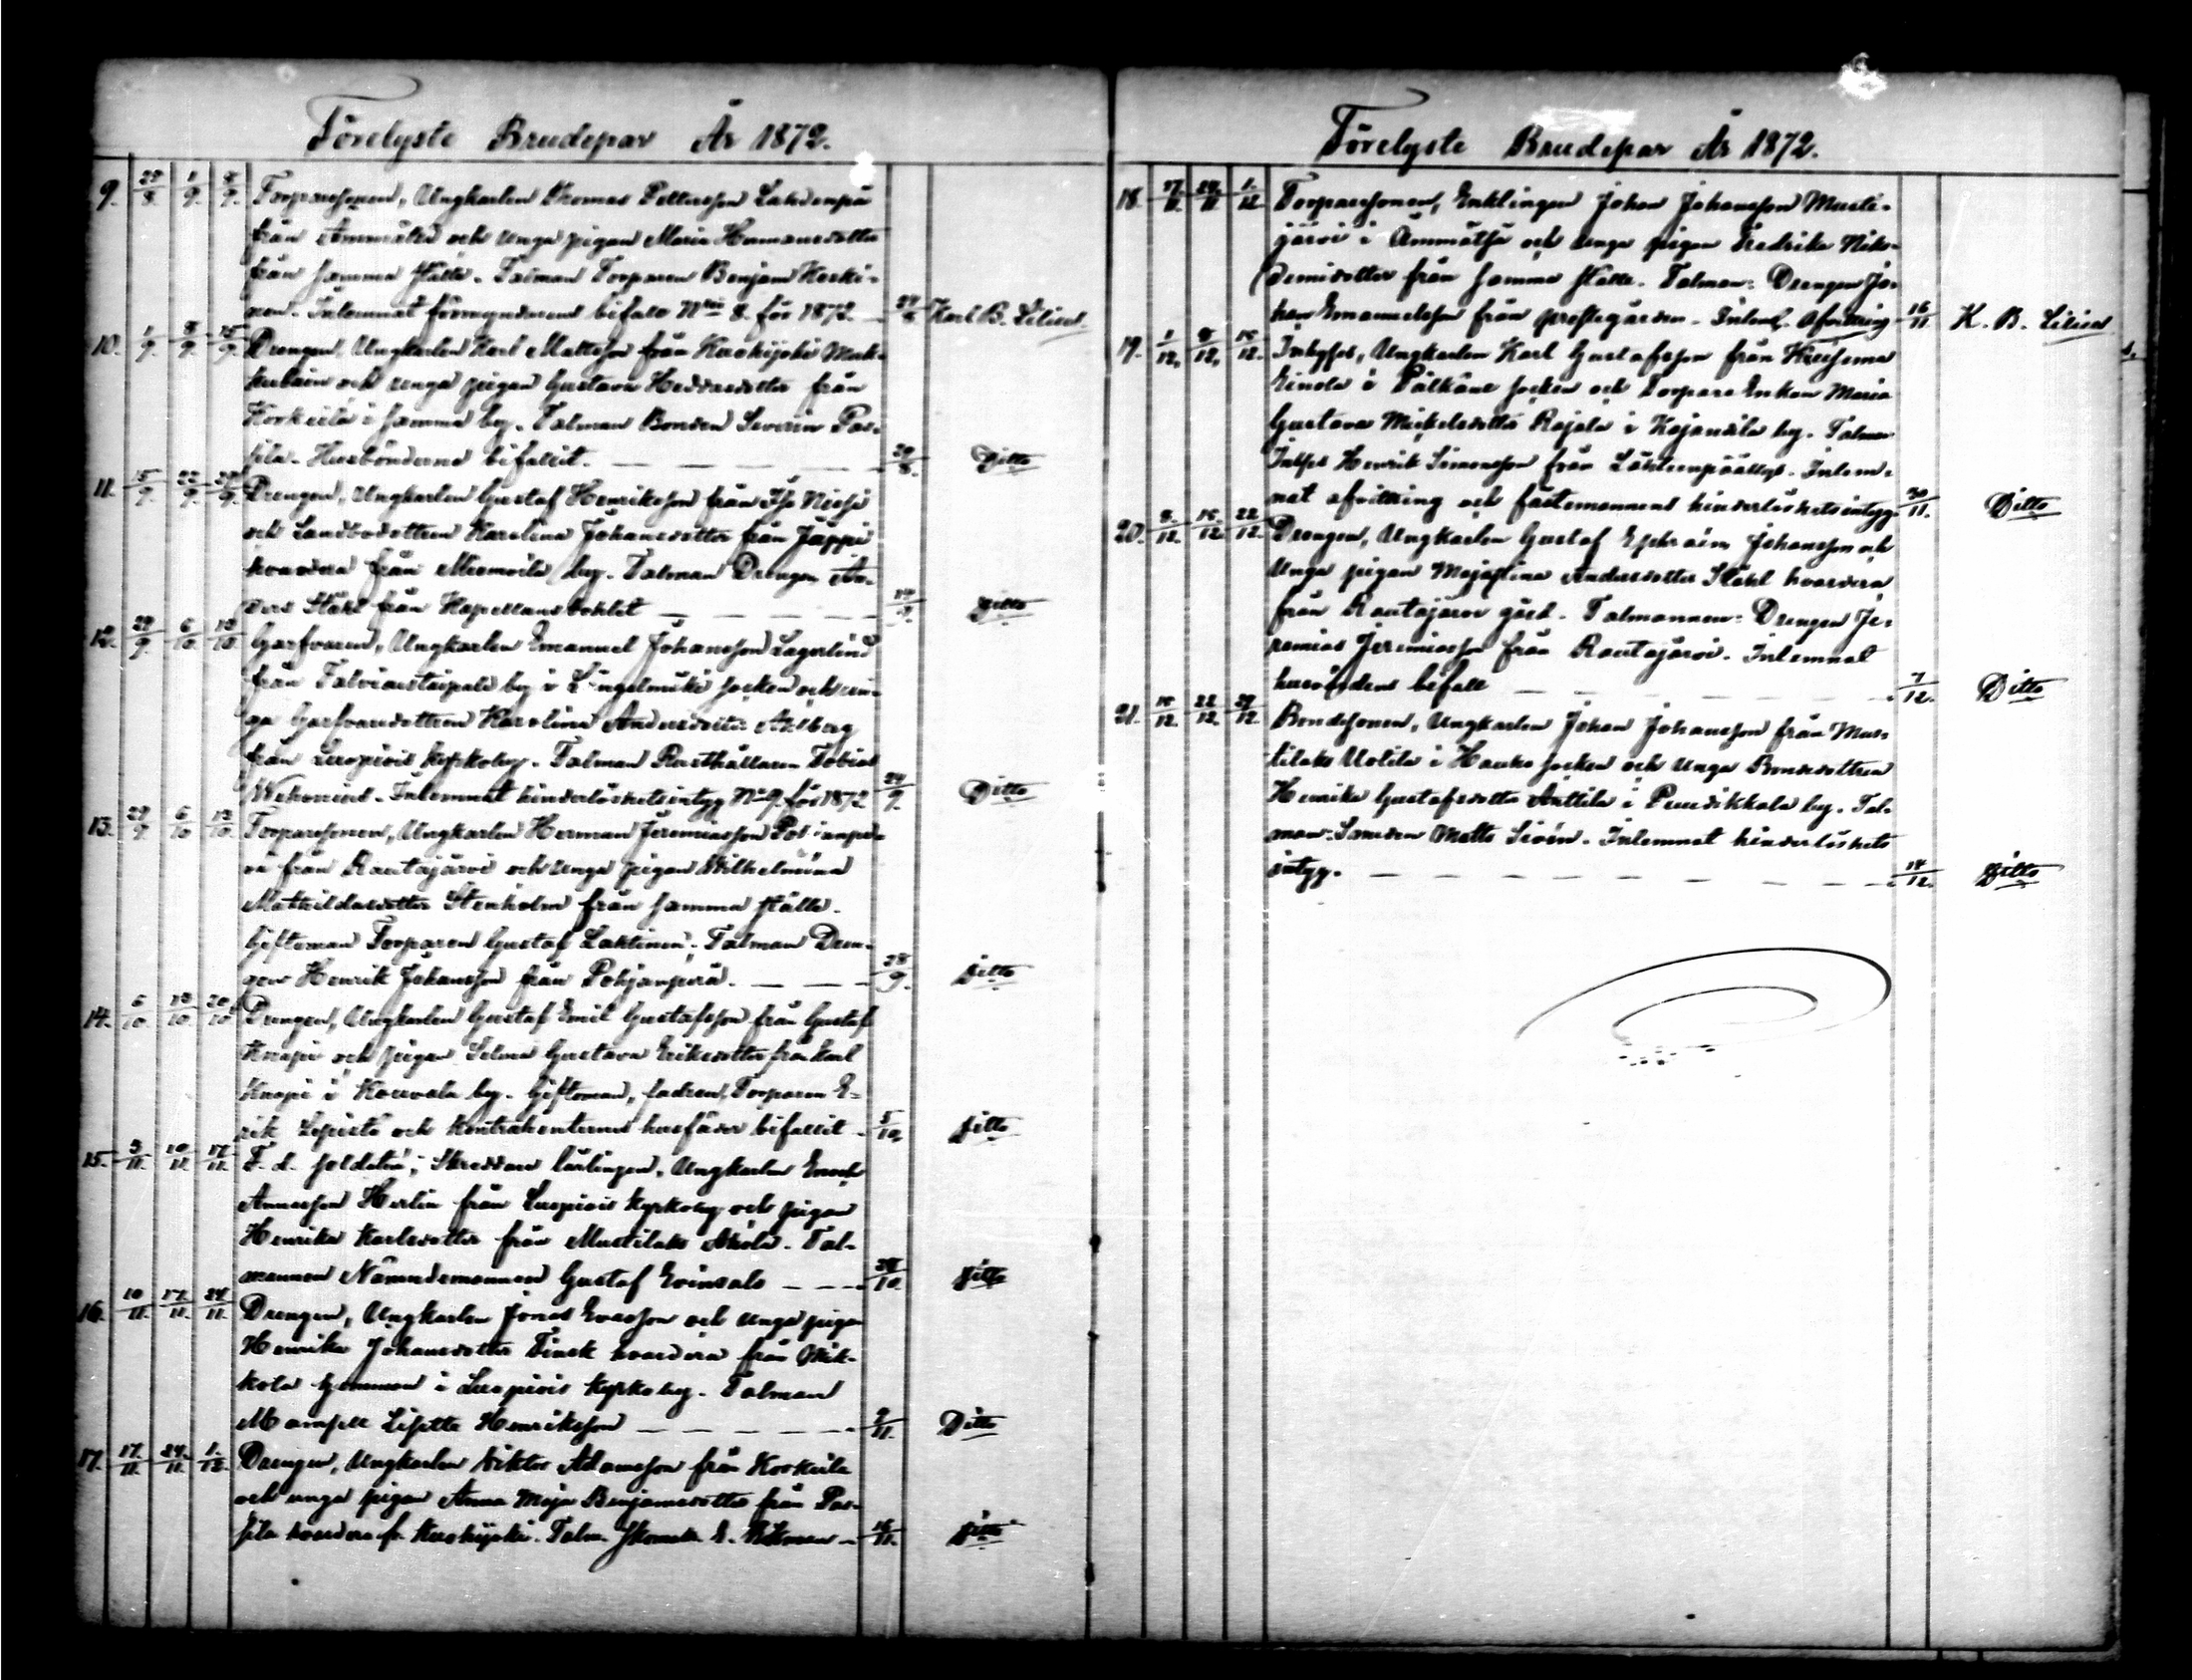 Förelyste Brudepar År 1872.
9. 25/8. 1/9. 8/9. Torparesonen, Ungkarlen Thomas Pettersson Lahdenpä
från Ammätsä och unga pigan Maria Hermansdotter
från samma ställe. Talman Torparen Benjam Koski-
nen. Inlemnat förmyndarens bifall No 8. för 1872. 24/8 Karl B. Lilius.
10. 1/9. 8/9. 15/9. Drengen, Ungkarlen Karl Mattsson från Kuohijoki
och unga pigan Gustava från
Korkeila i samma by. Talman Bonden Severin Pas-
sila. Husböndernes bifallit. 8. Ditto
11. 15/9. 22/9. 29/9. Drengen, Ungkarlen Gustaf Henriksson från Iso
och Landbodottren Karolina Johansdotter från Jäppi
hvardera från by. Talman Drengen An-
ders Ståhl från Kapellansbohlet 14/9. Ditto
12. 29/9. 6/10. 13/10. Garfvaren, Ungkarlen Emanuel Johansson Lagerlind
från Talviaistaipale by i Längelmäki socken och un-
ga Garfvaredottren Karolina Andersdotter Ahlberg
från Luopiois kyrkoby. Talman Rusthållaren Tobias
Wehoniemi. Inlemnat hinderlöshetsintyg No 9. för 1872 9. Ditto
13. 29/9 6/10 13/10. Torparesonen, Ungkarlen Herman Jeremiasson
från Rautajärvi och unga pigan Wilhelmina
Mathildasdotter Stenholm från samma ställe.
Giftoman Torparen Gustaf Lahtinen; Talman Dren-
gen Henrik Johansson från Pohjanperä. 28/9. ditto
14. 6/10. 13/10. 20/10. Drengen, Ungkarlen Gustaf Emil Gustafsson från Gustaf
Knapi och pigan Selma Gustava Eriksdotter från Karl
Knapi i Kouvala by. Giftoman, fadren, Torparen E-
rik Lepistö och Kontrahenternes husfäder bifallit 5/10. ditto
15. 3/11. 10/11. 17/11. F. d. soldaten; Skreddare lärlingen, Ungkarlen Enoch
Annasson Herlin från Luopiois kyrkoby och pigan
Henrika Karlsdotter från Mustilaks Ahola. Tal-
mannen Nämndemannen Gustaf Evinsalo 10. ditto
16. 10/11. 17/11. 24/11. Drengen, Ungkarlen Jonas Evasson och unga pigan
Henrika Johansdotter Finck hvardera från Mik-
kola hemman i Luopiois kyrkoby. Talman
Mamsell Lisette Henriksson 9/11. Ditto
17. 17/11. 24/11. 1/12. Drengen, Ungkarlen Viktor Adamsson från Korkeila
och unga pigan Anna Maja Benjamsdotter från Pas-
sila hvardera fr. Kuohijoki. Talm. Skomak. E. 16/11. ditto
Förelyste Brudepar År 1872.
18. 17/11. 24/11. 1/12 Torparesonen, Enklingen Johan Johansson Musti-
järvi i Ämmätsä och unga pigan Fredrika Niko-
demidotter från samma ställe. Talman: Drengen Jo-
han Emanuelsson från prestegården. Inlemn. Afvittring 16/11. K. B. Lilius
19. 1/12. 8/12. 15/12. Inhyses, Ungkarlen Karl Gustafsson från
Einola i Pälkäne socken och Torpare Enkan Maria
Gustava Mickelsdotter Rajala i Kajandila by. Talman
Inhyses Henrik Simonsson från. Inlem-
nat afvittring och fästemannens hinderlöshetsintyg 30/11. Ditto
20. 8/12. 15/12. 22/12. Drengen, Ungkarlen Gustaf Ephraim Johansson och
unga pigan Majastina Andersdotter Ståhl hvardera
från Rautajärvi gård. Talmannen: Drengen Je-
remias Jeremiasson från Rautajärvi. Inlemnat
husbondens bifall 7/12. Ditto
21. 15/12. 22/12. 29/12. Bondesonen, Ungkarlen Johan Johansson från Mus-
tilaks Uotila i Hauho socken och unga Bondedottren
Henrika Gustafsdotter Anttila i Puutikkala by. Tal-
man: Smeden Matts Sivén. Inlemnat hinderlöshets
intyg. 14/12. Ditto